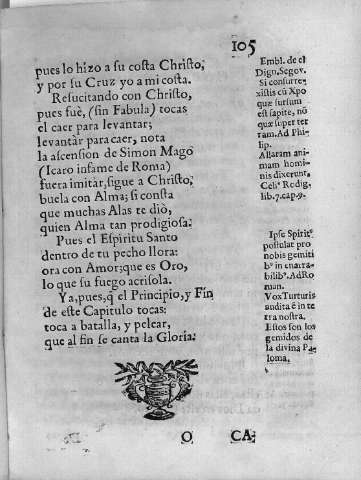 105
pues lo hizo a su costa Christo,
y por su Cruz yo a mi costa.
Resucitando con Christo,
pues fuè, (sin Fabula) tocas
el caer para levantar;
levantar para caer, nota
la ascension de Simon Mago
(Icaro infame de Roma)
fuera imitar, sigue a Christo,
buela con Alma; si consta
que muchas Alas te diò,
quien Alma tan prodigiosa:
Pues el Espiritu Santo
dentro de tu pecho llora:
ora con Amor; que es Oro,
lo que su fuego acrisola.
Ya, pues, q̃ el Principio, y Fin
de este Capitulo tocas:
toca a batalla, y pelear,
que al fin se canta la Gloria.
Embl. de el
Dign. Segov.
Si consurre-
xistis cũ Xpo
quæ sursum
est sapite, nõ
quæ super ter
ram. Ad Phi-
lip.
Allaram ani-
mam homi-
nis dixerunt,
Celiº Rodig.
lib. 7. cap. 9.
Ipse Spiritº
postulat pro
nobis gemiti
bº in enarra-
bilibº. Ad Ro
man.
Vox Turturis
audita è in te
rra nostra.
Estos son los
gemidos de
la divina Pa-
loma.
O CA-